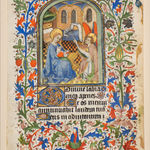 Domine labia
mea aperies
et os meum
annunciabit laudem tua
eus in adiutorium